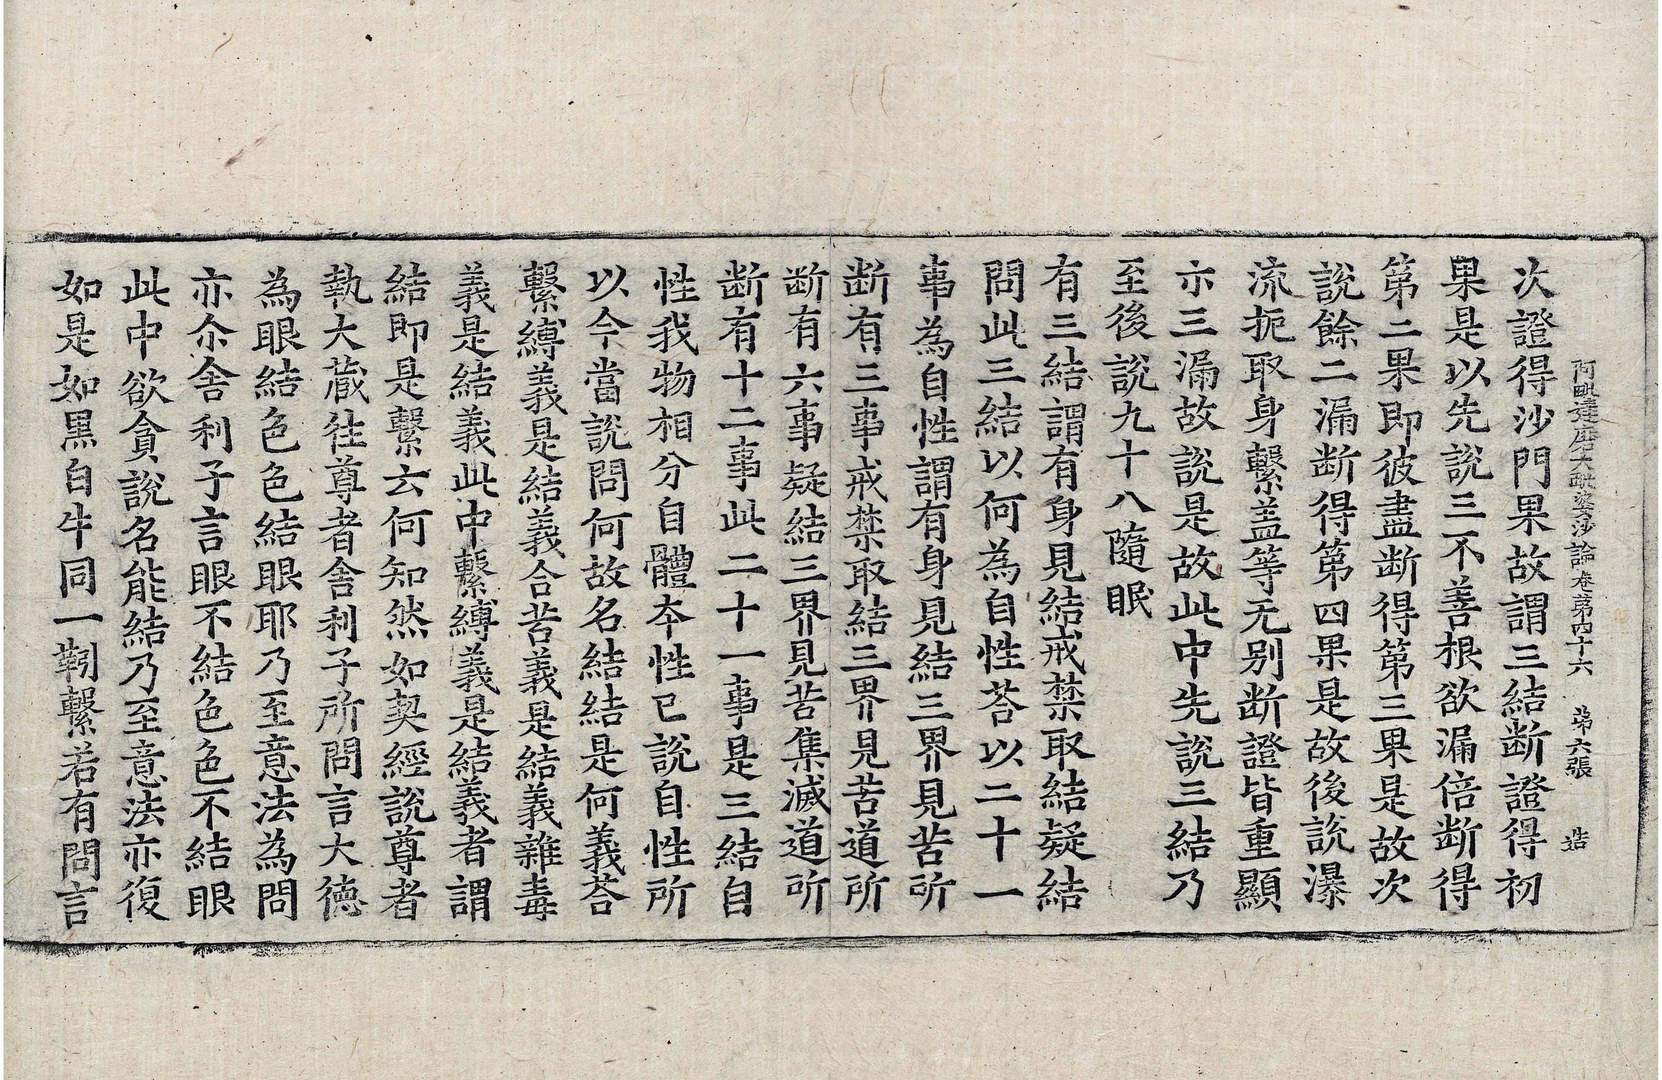 阿毗達磨大毗婆沙論卷第四十六 苐六張 造
次證得沙門果故謂三結断證得初
果是以先説三不善根欲漏倍断得
第二果即彼盡断得第三果是故次
說餘二漏断得第四果是故後説瀑
流扼取身繫盖等无别断證皆重顯
亦三漏故說是故此中先說三結乃
至後說九十八隨眠
有三結謂有身見結戒禁取結疑結
問此三結以何為自性荅以二十一
事為自性謂有身見結三界見苦所
断有三事戒禁取結三界見苦道所
断有六事疑結三界見苦集滅道所
断有十二事此二十一事是三結自
性我物相分自體夲性已說自性所
以今當說問何故名結結是何義荅
繫縛義是結義合苦義是結義雜毒
義是結義此中繫縛義是結義者謂
結即是繫云何知然如契經說尊者
執大藏往尊者舍利子所問言大德
為眼結色色結眼耶乃至意法為問
亦尒舍利子言眼不結色色不結眼
此中欲貪說名能結乃至意法亦復
如是如黒白牛同一靷繫若有問言